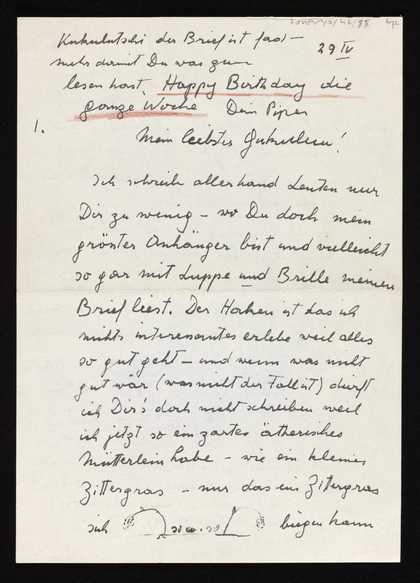 Kukulutschi der Brief ist fad –
29 IV
mehr damit Du was zum
lesen hast. Happy Birthday die
ganze Woche Dein Piper
1.
Mein liebstes
Ich schreibe allerhand Leuten nur
Dir zu wenig – wo Du doch mein
gröster Anhänger bist und vielleicht
so gar mit Luppe und Brille meinen
Brief liest. Der Hacken ist das ich
nichts interesantes erlebe weil alles
so gut geht – und wenn was nicht
gut wär (was nicht der Fall ist) durft
ich Dir's doch nicht schreiben weil
ich jetzt so ein zartes ätherisches
Mütterlein habe – wie ein kleines
Zittergras – nur das ein Zittergras
sich so u. so biegen kann